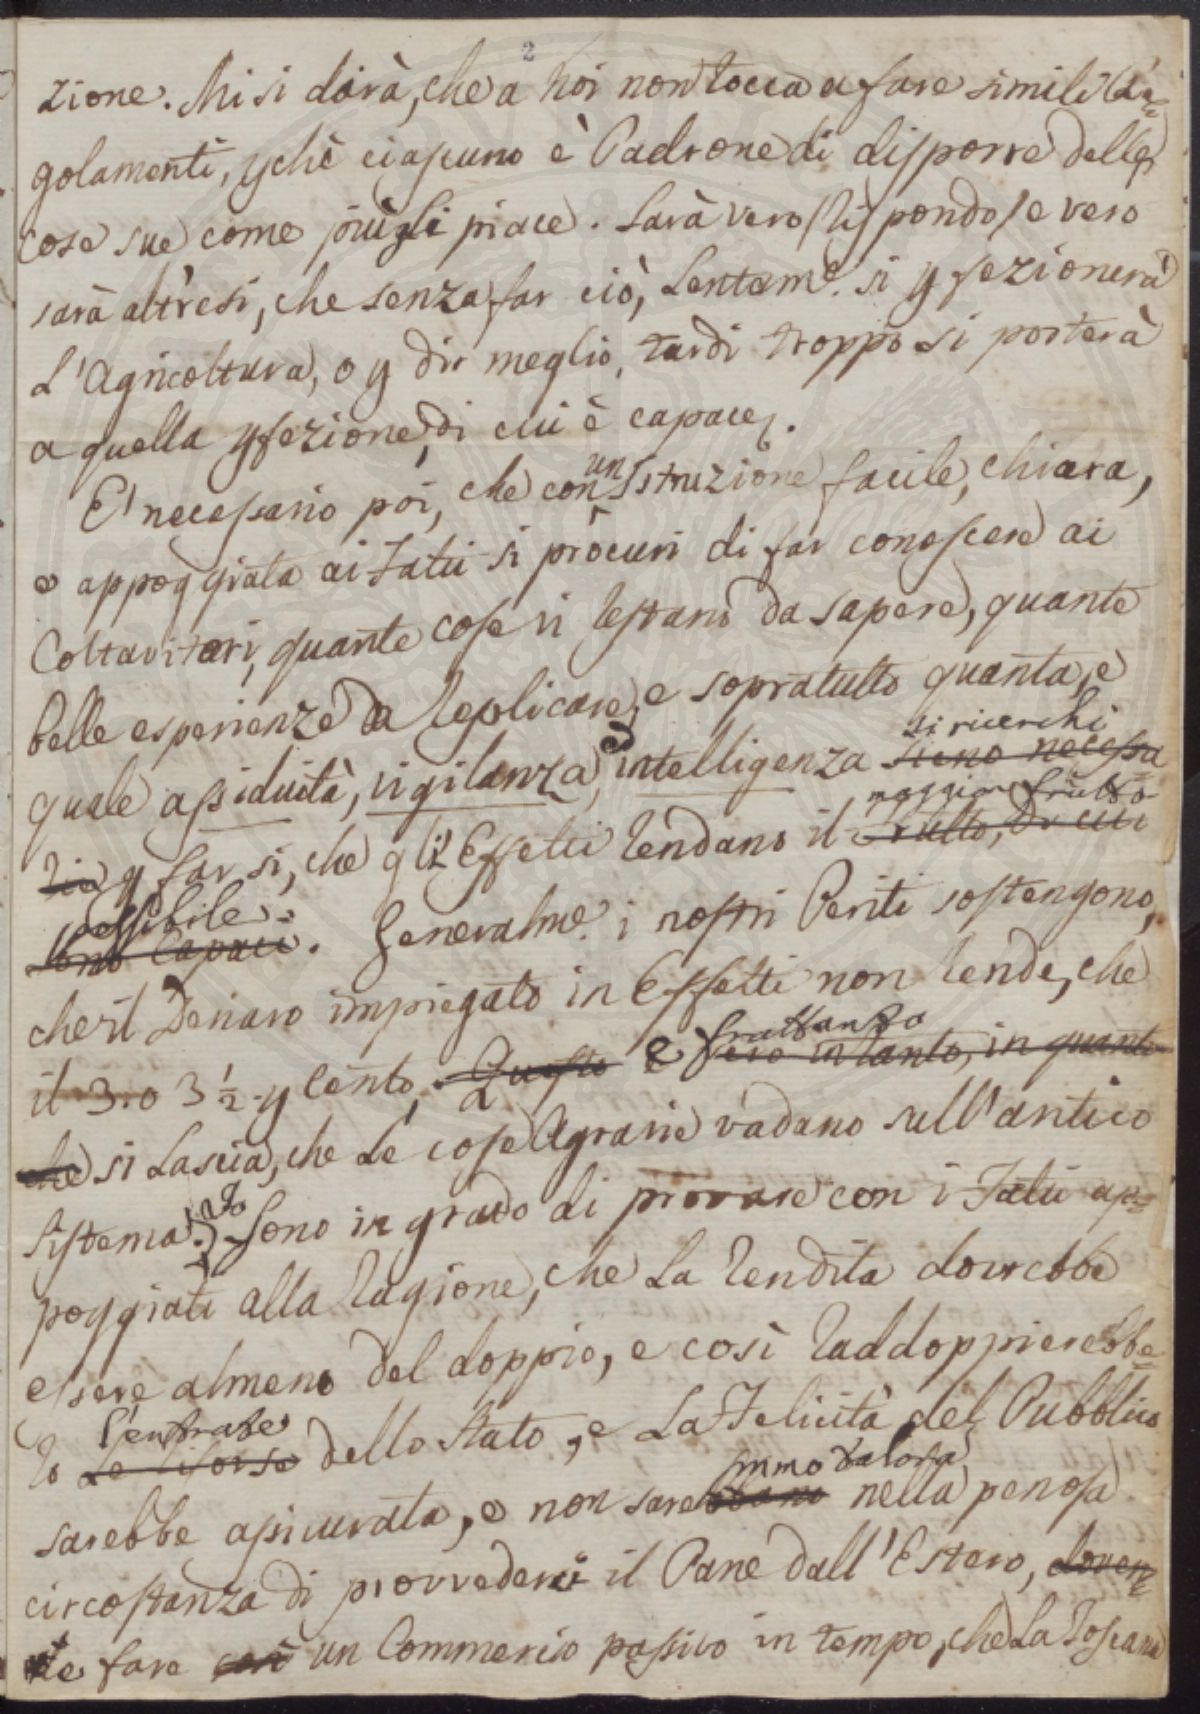 2
zione. Mi si dirà, che a noi non tocca a fare simili Re=
golamenti, pchè ciascuno è Padrone di disporre delle
cose sue come più gli piace. Sarà vero/rispondo/e vero
sarà altresi, che senza far ciò, Lentame. si pfezionerà
L'Agricoltura, o p dir meglio, tardi troppo si porterà
a quella pfezione, di cui è capace.
E' necessario poi, che con un Istruzione facile, chiara,
e appoggiata ai Fatti si procuri di far conoscere ai
Coltavitori, quante cose vi restano da sapere, quante
belle esperienze da replicare, e sopratutto quanta, e
si ricerchi
quale assiduità, vigilanza, ed intelligenza sieno necessa
maggior frutto
rie p far si, che gli Effetti rendano il frutto, di cui
possibile.
sono capaci. Generalme. i nostri Periti sostengono,
che il Denaro impiegato in Effetti non rende, che
frattanto
il 3. o 3 1/2. p Cento, Questo e vero in tanto, in quanto
che si Lascia, che Le cose Agrarie vadano sull'antico
Sistema. Io Sono in grado di provare con i Fatti ap=
poggiati alla Ragione, che La rendita dovrebbe
essere almeno del doppio, e così raddoppierebbe
L'entrate
ro Le risorse dello Stato, e La Felicità del Pubblico
ammo talora
sarebbe assicurata, e non sarebbamo nella penosa
circostanza di provvedere il Pane dall'Estero, doven=
e fare così un Commercio passivo in tempo, che La Toscana